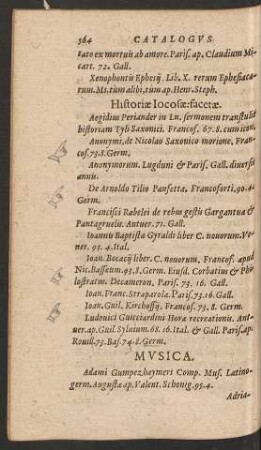 364 CATALOGVS
tato ex mortuis ab amore. Paris. ap. Claudium Mi-
cart. 72. Gall.
Xenophontis Ephesij. Lib. X. rerum Ephesiaca-
rum. Ms. tum alibi, tum ap. Henr. Steph.
Historiæ Iocosæ: facetæ.
Aegidius Periander in Ln. sermonem transtulit
historiam Tyb Saxonici. Francof. 67. 8. cum icon.
Anonymi, de Nicolao Saxonico morione, Franc-
fof. 73. 8. Germ.
Anonymorum. Lugduni & Paris. Gall. diversis
annis.
De Arnoldo Tilio Pansetta. Francoforti. 90. 4.
Germ.
Francisci Rabelei de rebus gestis Gargantuæ &
Pantagruelis. Antuer. 71. Gall.
Ioannis Baptista Gyraldi liber C. nouorum. Ve-
net. 93. 4. Ital.
Ioan. Bocacij liber C. nouorum, Francof. apud
Nic. Bassæum. 93. 8. Germ. Eiusd. Corbatius & Phi-
lostratus. Decameron, Paris. 73. 16. Gall.
Ioan. Franc. Straparola. Paris. 73. 16. Gall.
Ioan. Guil. Kirchoffij, Francof. 73. 8. Germ.
Ludouici Guicciardini Horæ recreationis. Ant-
uer. ap. Guil. Syluium. 68. 16. Ital. & Gall. Paris. ap.
Rouill. 73. Bas. 74. 8. Germ.
MVSICA.
Adami Gumpezhaymeri Comp. Mus. Latino-
germ. Augustæ ap. Valent. Schönig. 95. 4.
Adria-